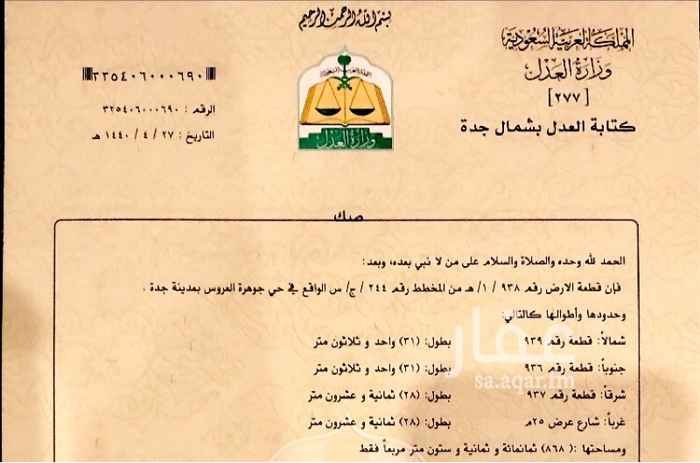 بسم الله الرحمن الرحيم
المملكة العربية السعودية
وزارة العدل
[٢٧٧]
كتابة العدل بشمال جدة
وزارة العدل
٣٢٥٤٠٦٠٠٠٦٩٠
الرقم : ٣٢٥٤٠٦٠٠٠٦٩٠
التاريخ : ٢٧ / ٤ / ١٤٤٠ هـ
صك
الحمد لله وحده والصلاة والسلام على من لا نبي بعده، وبعد:
فإن قطعة الارض رقم ٩٣٨ /١/ هـ من المخطط رقم ٢٤٤ /ج/ س الواقع في حي جوهرة العروس بمدينة جدة .
وحدودها وأطوالها كالتالي:
شمالاً: قطعة رقم ٩٣٩ بطول: (٣١) واحد و ثلاثون متر
جنوباً: قطعة رقم ٩٣٦ بطول: (٣١) واحد و ثلاثون متر
شرقاً: قطعة رقم ٩٣٧ بطول: (٢٨) ثمانية و عشرون متر
غرباً: شارع عرض ٢٥م بطول: (٢٨) ثمانية و عشرون متر
ومساحتها :( ٨٦٨) ثمانمائة و ثمانية و ستون متر مربعاً فقط
عقار
sa.aqar.fm